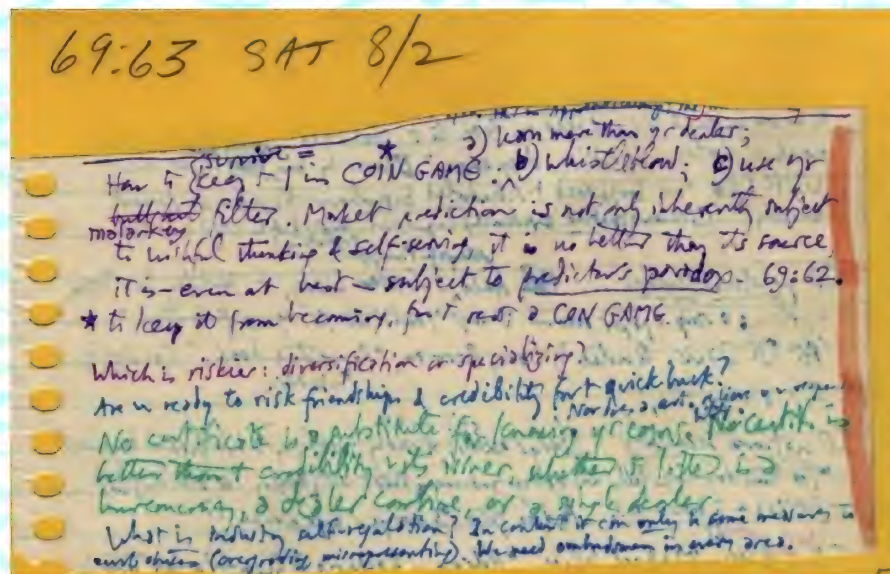 69:63 SAT 8/2
a) learn more than yr dealer;
survive =
How to {keep + 1 in COIN* GAME: b) whistleblow; c) use yr
malarkey filter. Market prediction is not only inherently subject
to wishful thinking & self-serving, it is no better than its source,
it is – even at best – subject to predictor's paradox. 69:62.
* to keep it from becoming, a CON GAME.
Which is riskier: diversification or specializing?
Are u ready to risk friendships & credibility for + quick buck?
No certificate is a substitute for knowing yr coins. No certif. is
better than + credibility its issuer, whether latter is a
bureaucracy, a dealer combine, or a single dealer.
What is industry self-regulation? In context it can only be some measures to
curb abuses (overgrading misrepresenting). We need ombudsmen in every area.